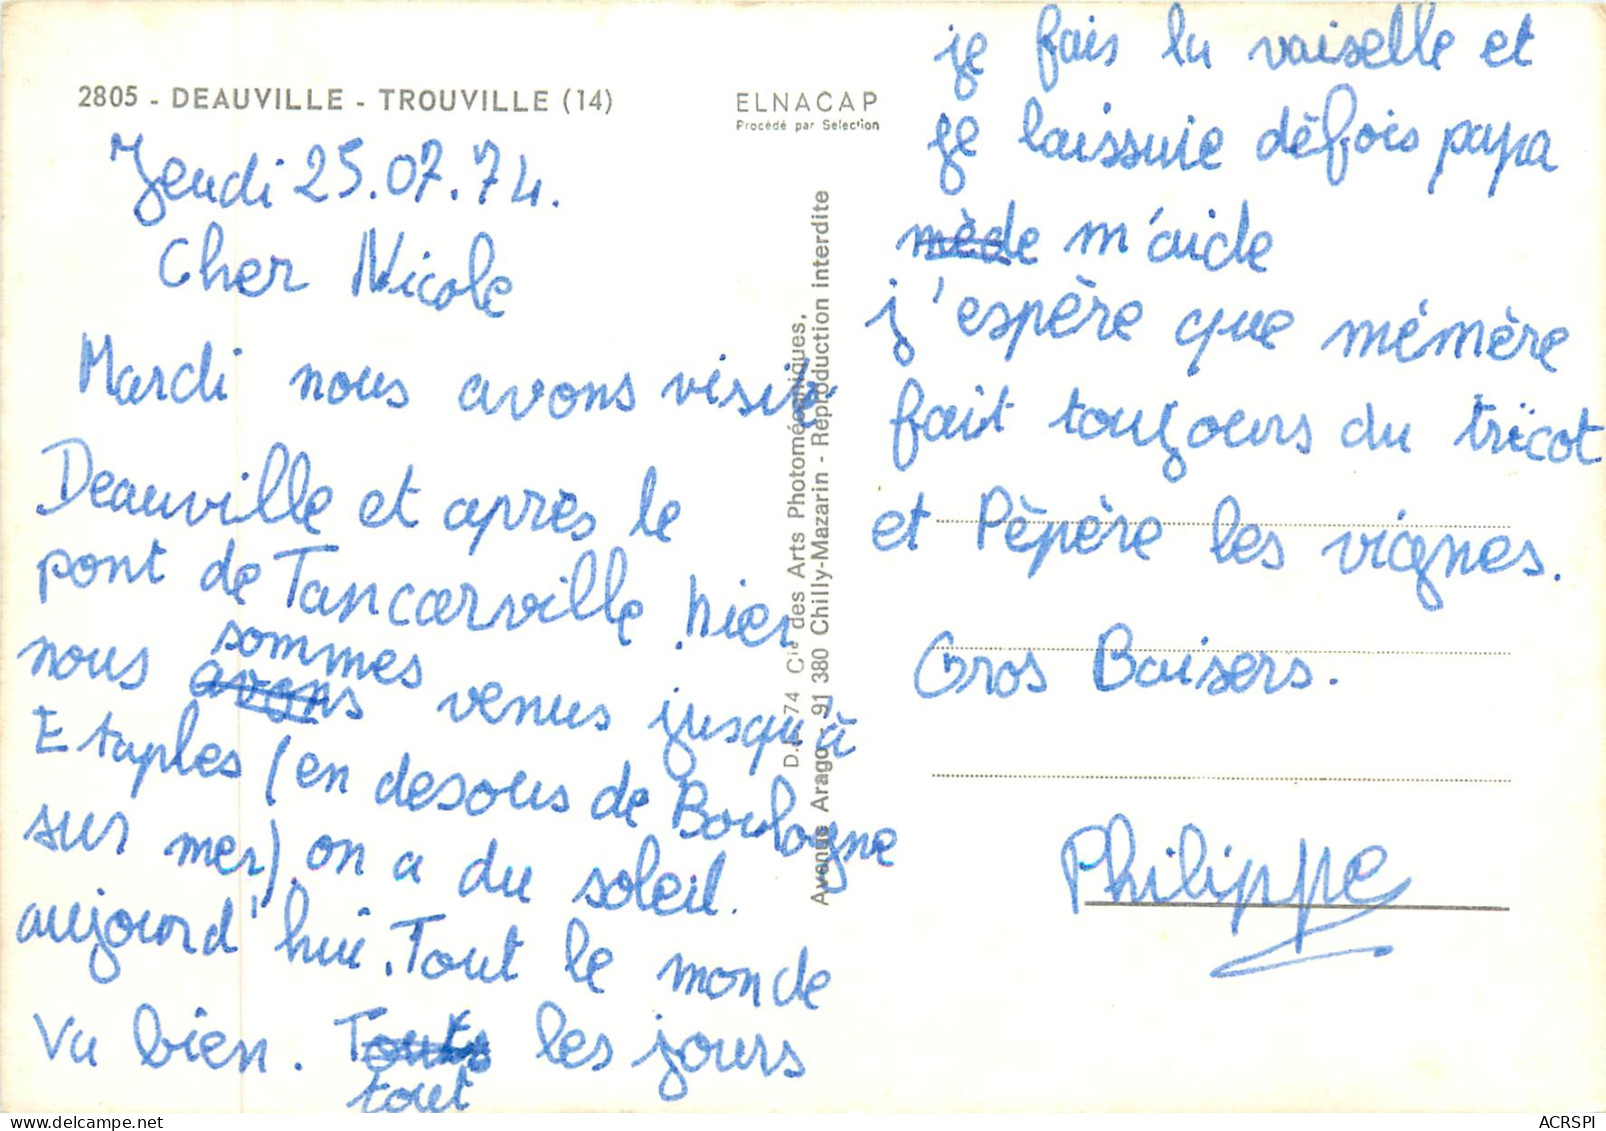 2805 - DEAUVILLE - TROUVILLE (14)
ELNACAP
Procédé par Sélection
Jeudi 25.07.74.
Cher Nicole
Mardi nous avons visité
Deauville et après le
pont de Tancarville. hier
nous avons sommes venus jusqu'à
Etaples (en desous de Boulogne
sur mer). on a du soleil.
aujourd'hui. Tout le monde
va bien. Touts tout les jours
je fais la vaiselle et
je laissuie défois papa
mède m'aide
j'espère que mémère
fait toujours du tricot
et Pèpère les vignes.
Gros Baisers.
Philippe
D.L. 74 Cie des Arts Photomécaniques,
Avenue Arago - 91 380 Chilly-Mazarin - Reproduction interdite
ACRSPI